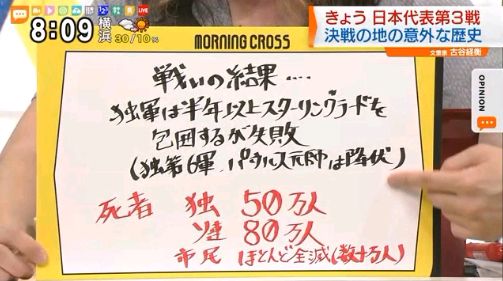 8:09
横浜
30/10%
LIVE
きょう 日本代表第3戦
決戦の地の意外な歴史
文筆家 古谷経衡
OPINION
MORNING CROSS
戦いの結果‥‥
独軍は半年以上スターリングラードを
包囲するが失敗
(独第6軍、パウルス元帥は降伏)
死者 独 50万人
ソ連 80万人
市民 ほとんど全滅(数十万人)